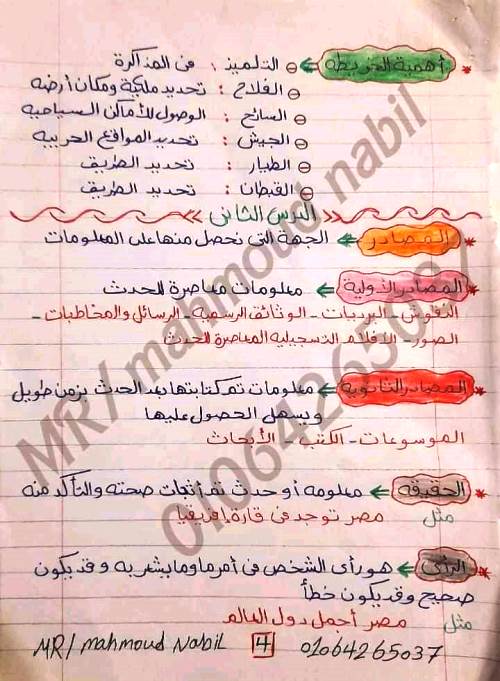 * أهمية الخريطه ← ⊖ التلميذ : فى المذاكرة
⊖ الفلاح : تحديد ملكية ومكان أرضه
⊖ السائح : الوصول للأماكن السياحيه
⊖ الجيش : تحديد المواقع الحربيه
⊖ الطيار : تحديد الطريق
⊖ القبطان : تحديد الطريق
الدرس الثانى
* المصادر ← الجهة التى نحصل منها على المعلومات
* المصادر الأولية ← معلومات معاصرة للحدث
النقوش - البرديات - الوثائق الرسميه - الرسائل والمخاطبات -
الصور - الأفلام التسجيليه المعاصرة للحدث
* المصادر الثانوية ← معلومات تم كتابتها بعد الحدث بزمن طويل
ويسهل الحصول عليها
الموسوعات - الكتب - الأبحاث
* الحقيقه ← معلومه أو حدث تم أثبات صحته والتأكد منه
مثل مصر توجد فى قارة إفريقيا
* الرأى ← هو رأى الشخص فى أمر ما وما يشعر به وقد يكون
صحيح وقد يكون خطأ
مثل مصر أجمل دول العالم
MR/ mahmoud Nabil 4 01064265037
MR/ mahmoud nabil
01064265037